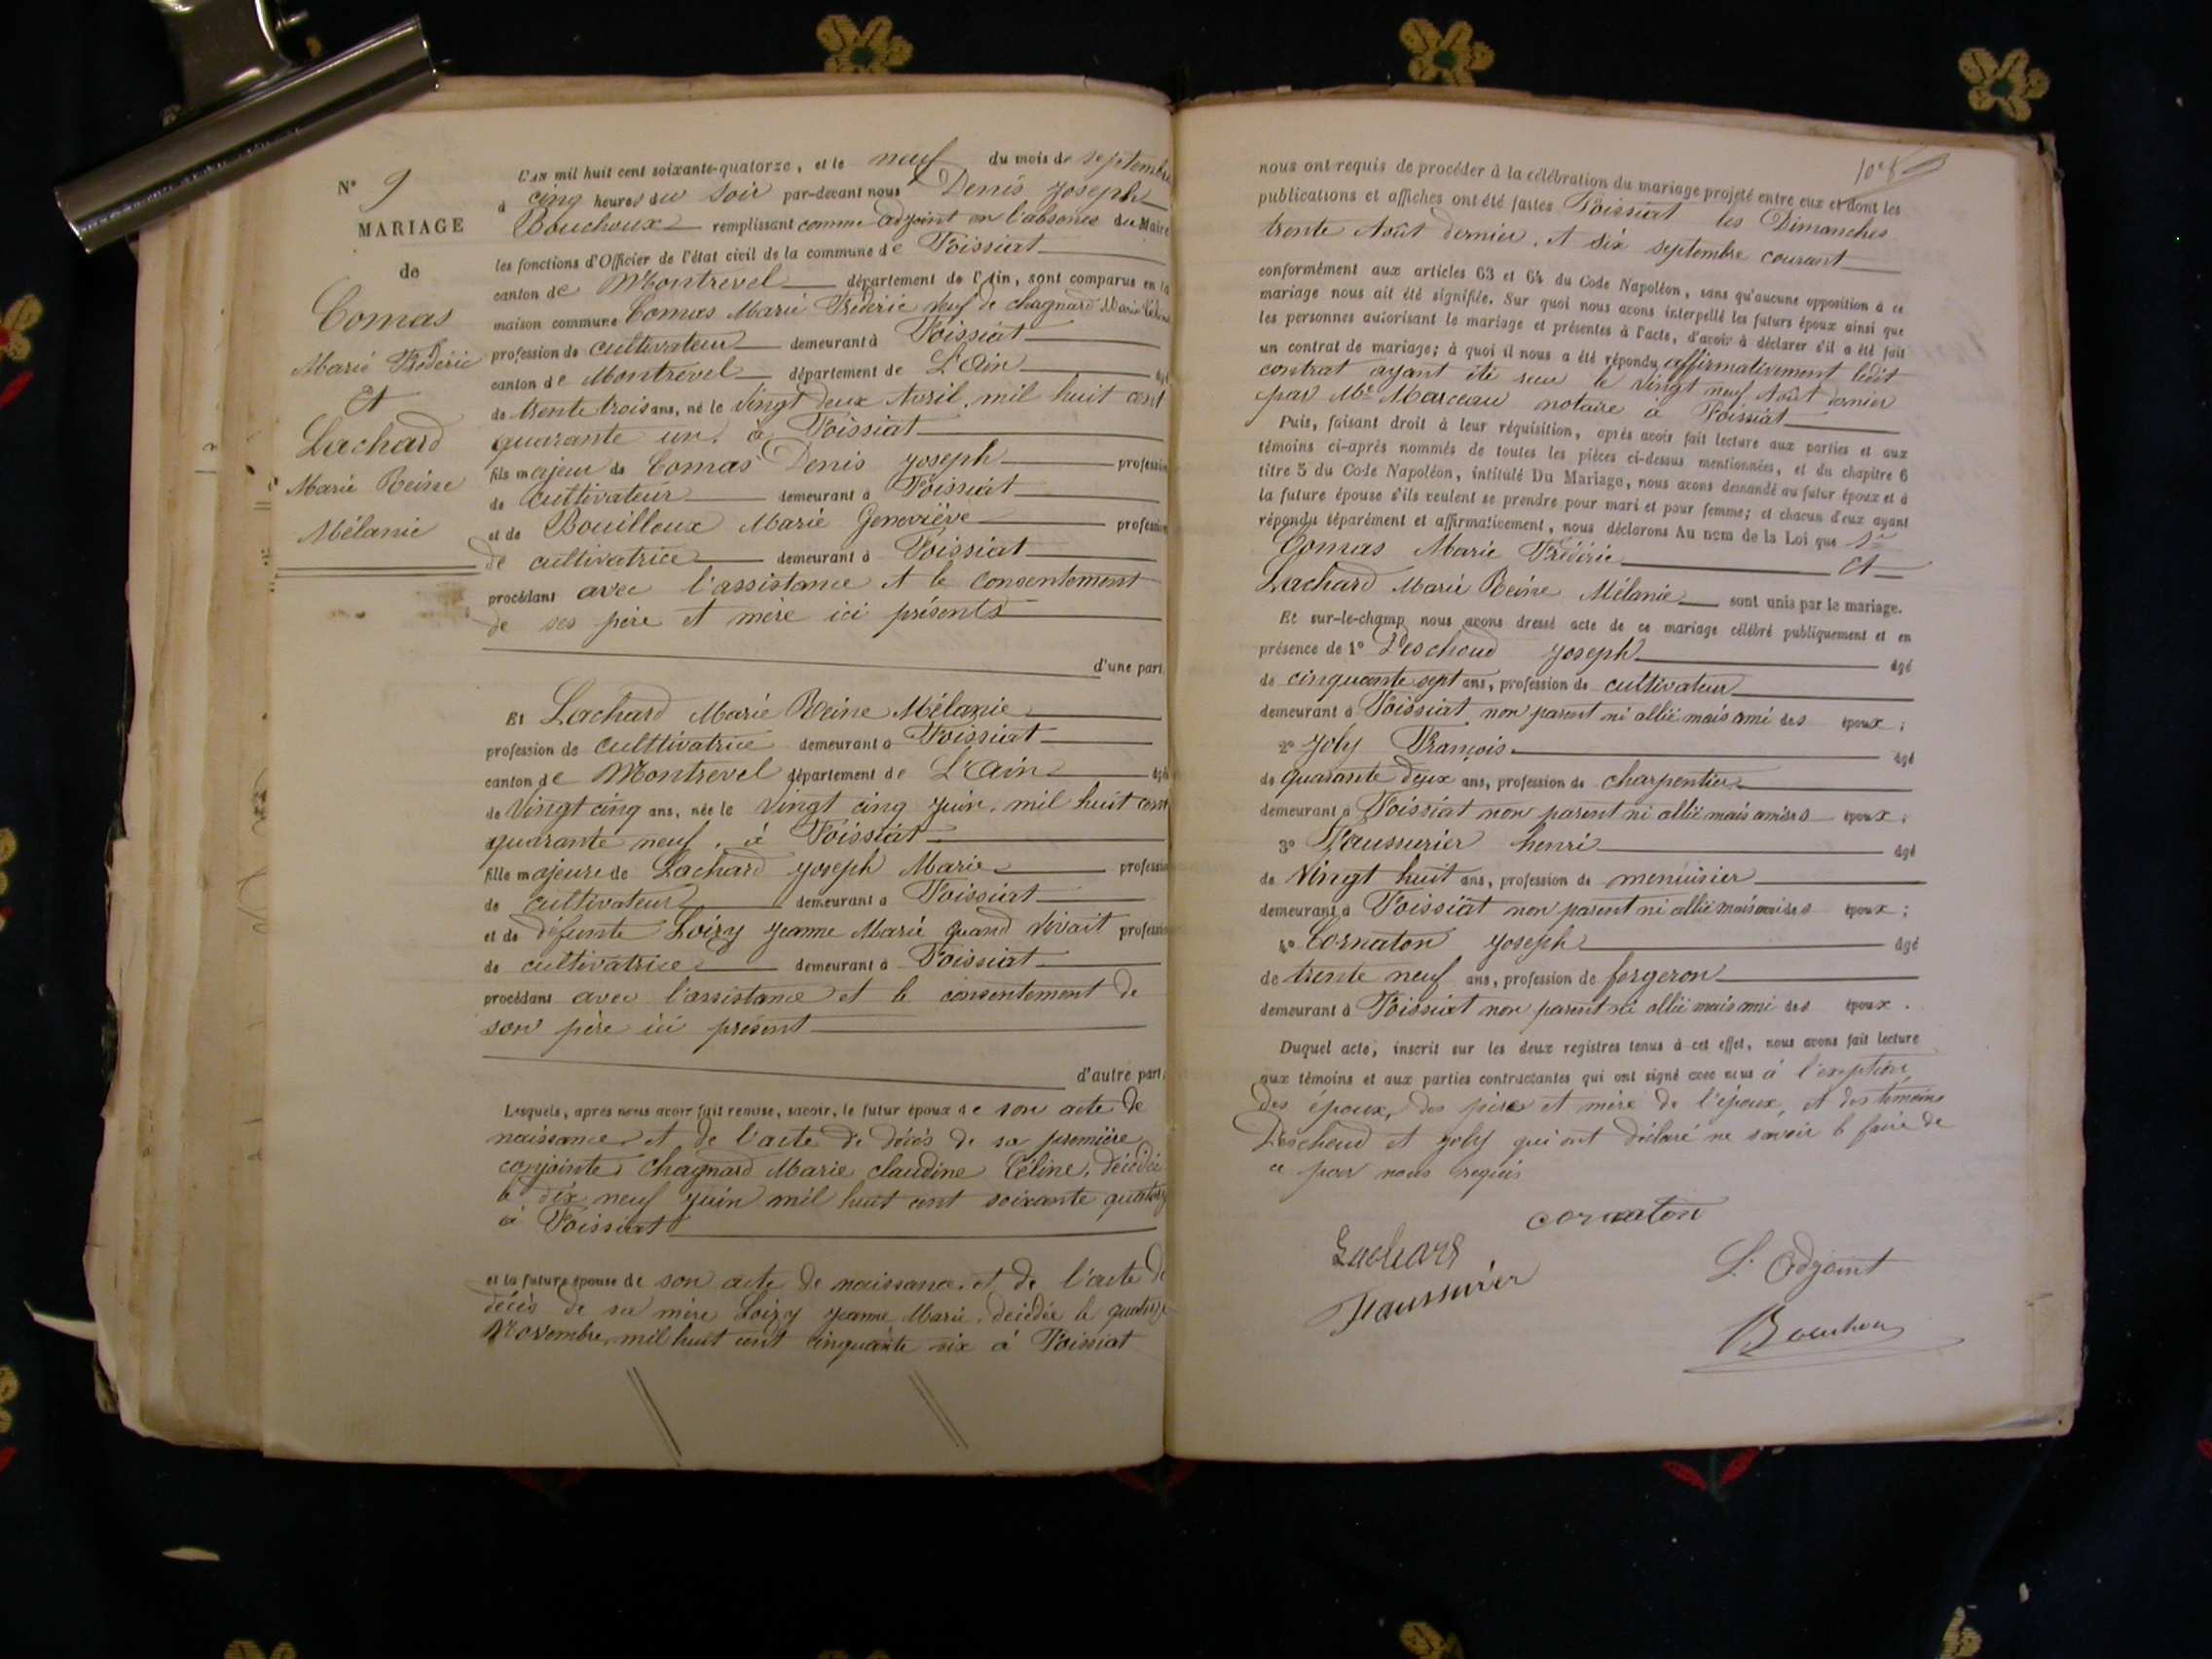 N° 9
MARIAGE
de
Comas
Marie Frédéric
Et
Lachard
Marie Reine
Mélanie
L'AN mil huit cent soixante-quatorze, et le neuf du mois de septembre
à cinq heures du soir par-devant nous Denis Joseph
Bouchoux remplissant comme adjoint en l'absence du Maire
les fonctions d'Officier de l'état civil de la commune de Foissiat
canton de Montrevel département de l'Ain, sont comparus en la
maison commune Comas Marie Frédéric veuf de Chagnard Marie
profession de cultivateur demeurant à Foissiat
canton de Montrevel département de L'Ain âgé
de trente trois ans, né le vingt deux Avril, mil huit cent
quarante un, à Foissiat
fils majeur de Comas Denis Joseph profession
de cultivateur demeurant à Foissiat
et de Bouilloux Marie Geneviève profession
de cultivatrice demeurant à Foissiat
procédant avec l'assistance et le consentement
de ses père et mère ici présents
d'une part.
Et Lachard Marie Reine Mélanie
profession de culttivatrice demeurant à Foissiat
canton de Montrevel département de L'Ain âgée
de vingt cinq ans, née le vingt cinq juin, mil huit cent
quarante neuf, à Foissiat
fille majeure de Lachard Joseph Marie profession
de cultivateur demeurant à Foissiat
et de défunte Loizy Jeanne Marie quand vivait profession
de cultivatrice demeurant à Foissiat
procédant avec l'assistance et le consentement de
son père ici présent
d'autre part.
Lesquels, après nous avoir fait remise, savoir, le futur époux de son acte de
naissance et de l'acte de décès de sa première
conjointe Chagnard Marie Claudine Céline, décédée
le dix neuf juin mil huit cent soixante quatorze
à Foissiat
et la future épouse de son acte de naissance, et de l'acte de
décès de sa mère Loizy Jeanne Marie, décédée le quatorze
Novembre, mil huit cent cinquante six à Foissiat
nous ont requis de procéder à la célébration du mariage projeté entre eux et dont les
publications et affiches ont été faites Foissiat les Dimanches
trente Août dernier, et six septembre courant
conformément aux articles 63 et 64 du Code Napoléon, sans qu'aucune opposition à ce
mariage nous ait été signifiée. Sur quoi nous avons interpellé les futurs époux ainsi que
les personnes autorisant le mariage et présentes à l'acte, d'avoir à déclarer s'il a été fait
un contrat de mariage; à quoi il nous a été répondu affirmativement ledit
contrat ayant été reçu le vingt neuf Août dernier
par Me Marceau notaire à Foissiat
Puis, faisant droit à leur réquisition, après avoir fait lecture aux parties et aux
témoins ci-après nommés de toutes les pièces ci-dessus mentionnées, et du chapitre 6
titre 5 du Code Napoléon, intitulé Du Mariage, nous avons demandé au futur époux et à
la future épouse s'ils veulent se prendre pour mari et pour femme; et chacun d'eux ayant
répondu séparément et affirmativement, nous déclarons Au nom de la Loi que
Comas Marie Frédéric Et
Lachard Marie Reine Mélanie sont unis par le mariage.
Et sur-le-champ nous avons dressé acte de ce mariage célébré publiquement et en
présence de 1° Deschoud Joseph âgé
de cinquante sept ans, profession de cultivateur
demeurant à Foissiat non parent ni allié mais ami des époux;
2° Joly François âgé
de quarante deux ans, profession de charpentier
demeurant à Foissiat non parent ni allié mais ami des époux;
3° Faussurier henri âgé
de Vingt huit ans, profession de menuisier
demeurant à Foissiat non parent ni allié mais ami des époux;
4° Cornaton Joseph âgé
de trente neuf ans, profession de forgeron
demeurant à Foissiat non parent ni allié mais ami des époux.
Duquel acte, inscrit sur les deux registres tenus à cet effet, nous avons fait lecture
aux témoins et aux parties contractantes qui ont signé avec nous à l'exeption
des époux, des père et mère de l'époux, et des témoins
Deschoud et Joly qui ont déclaré ne savoir le faire de
ce par nous requis
cornaton
Lachard
Faussurier
L'Adjoint
Bouchoux